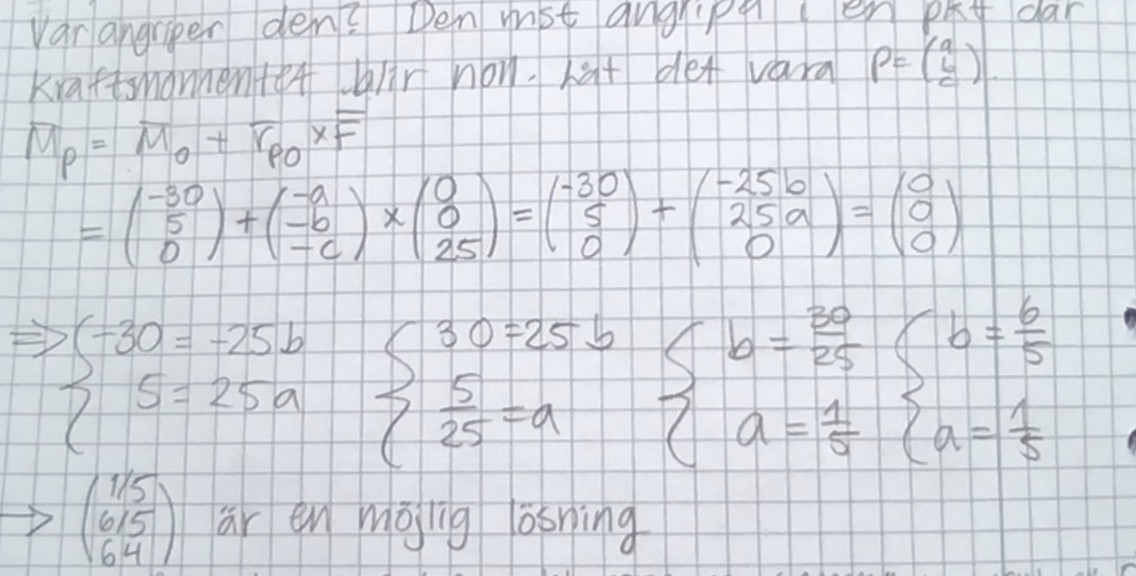 Var angriper den? Den mst angripa i en pkt där
kraftsmomentet blir noll. Låt det vara P=(a b c).
M̅p = M̅o + r̅po × F̅
= (-30 5 0) + (-a -b -c) × (0 0 25) = (-30 5 0) + (-25b 25a 0) = (0 0 0)
⇒ { -30 = -25b 5 = 25a { 30 = 25b 5/25 = a { b = 30/25 a = 1/5 { b = 6/5 a = 1/5
→ (1/5 6/5 64) är en möjlig lösning